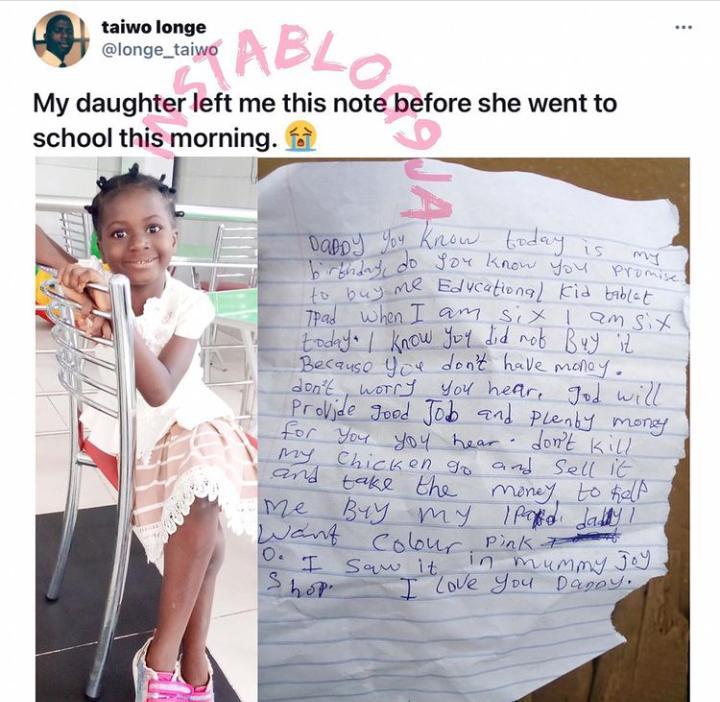 taiwo longe
@longe_taiwo
INSTABLOG9JA
My daughter left me this note before she went to
school this morning. 😭
DaDDY you know today is my
birthday, do you know you promise
to buy me Educational Kid tablet
IPad when I am six I am six
today. I know you did not Buy it
Because you don't have money.
don't worry you hear. god will
Provide good Job and Plenty money
for you you hear. don't kill
my chicken go and sell it
and take the money to help
me Buy my IPad. daddy I
want colour Pink
O. I saw it in mummy Joy
Shop. I love you Daddy.